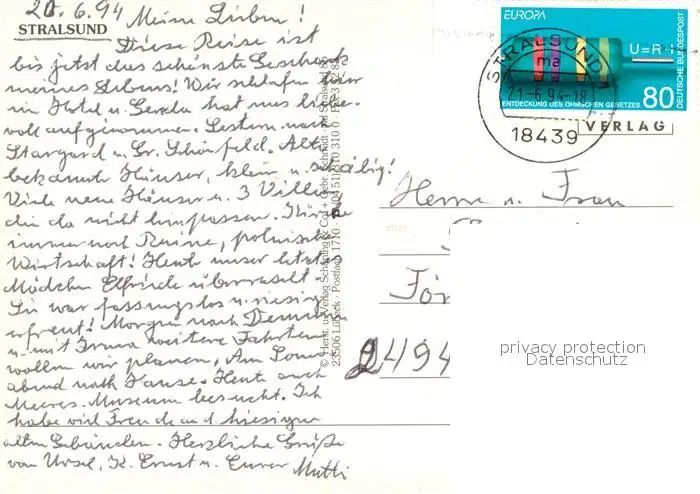 20.6.94 Meine Lieben!
STRALSUND
Diese Reise ist
bis jetzt das schönste Geschenk
meines Lebens! Wir schlafen hier
im Hotel u. Gerda hat uns liebe-
voll aufgenommen. Gestern nach
Stargard u. Gr. Schönfeld. Alt-
bekannte Häuser, klein u. schäbig!
Viele neue Häuser u. 3 Villen
die da nicht hinpassen. Kirche
immer noch Ruine, polnische
Wirtschaft! Heute unser letztes
Mädchen Elfriede überrascht.
Sie war fassungslos u. riesig
erfreut! Morgen nach Demmin
u. mit Irma weitere Fahrten
wollen wir planen. Am Sonn-
abend nach Hause. Heute auch
Meeres-Museum besucht. Ich
habe viel Freude an d. hiesigen
alten Gebäuden. Herzliche Grüße
von Ursel, K. Ernst u. Eurer Mutti
© Herst. u. Verlag Schöning & Co. + Gebr. Schmidt
23506 Lübeck · Postfach 1710
EUROPA
U=R·I
DEUTSCHE BUNDESPOST
ENTDECKUNG DES OHMSCHEN GESETZES 80
STRALSUND 1
ma
21.-6.94-18
18439
VERLAG
Herrn u. Frau
För
2494
privacy protection
Datenschutz